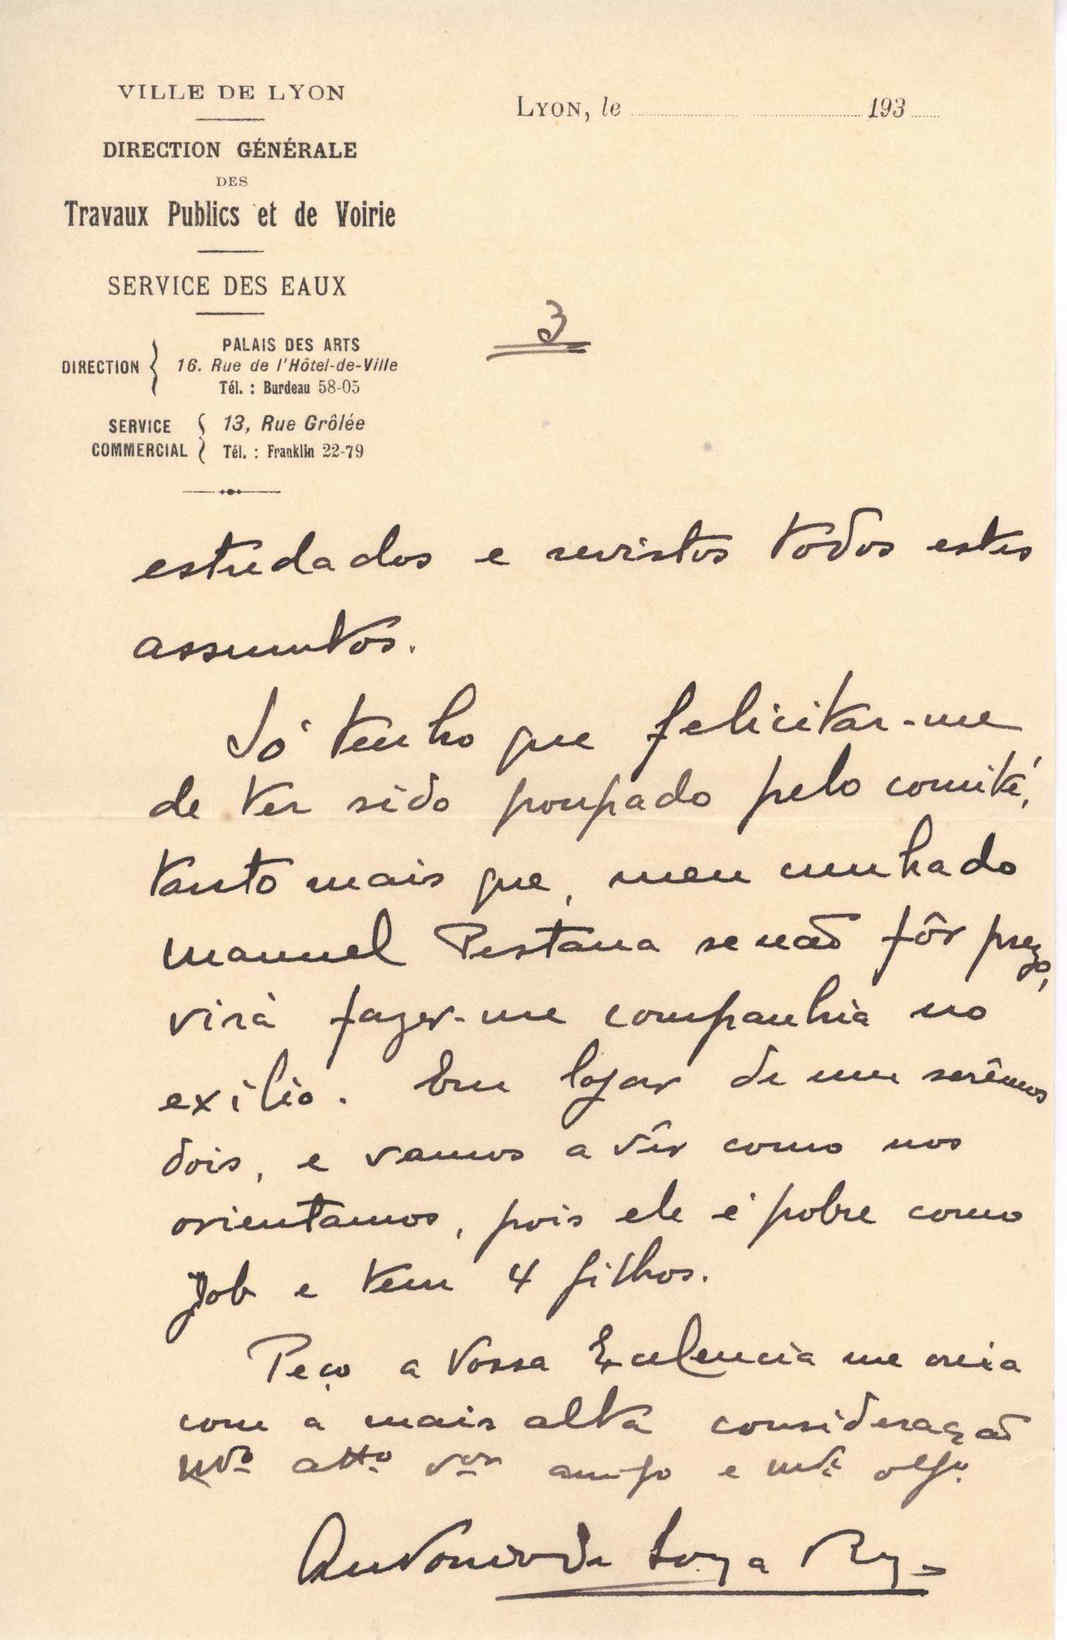 VILLE DE LYON
DIRECTION GÉNÉRALE
DES
Travaux Publics et de Voirie
SERVICE DES EAUX
DIRECTION
PALAIS DES ARTS
16. Rue de l'Hôtel-de-Ville
Tél. : Burdeau 58-05
SERVICE COMMERCIAL
13, Rue Grôlée
Tél. : Franklin 22-79
LYON, le 193
3
estudados e revistos todos estes
assuntos.
Só tenho que felicitar-me
de ter sido poupado pelo comité,
tanto mais que, meu cunhado
Manuel Pestana se não fôr prezo,
virá fazer-me companhia no
exilio. Em logar de um serêmos
dois, e vamos a vêr como nos
orientamos, pois ele é pobre como
Job e tem 4 filhos.
Peço a Vossa Excelencia me creia
com a mais alta consideração
Mto atto vor amigo e mto obgo
Antonio de